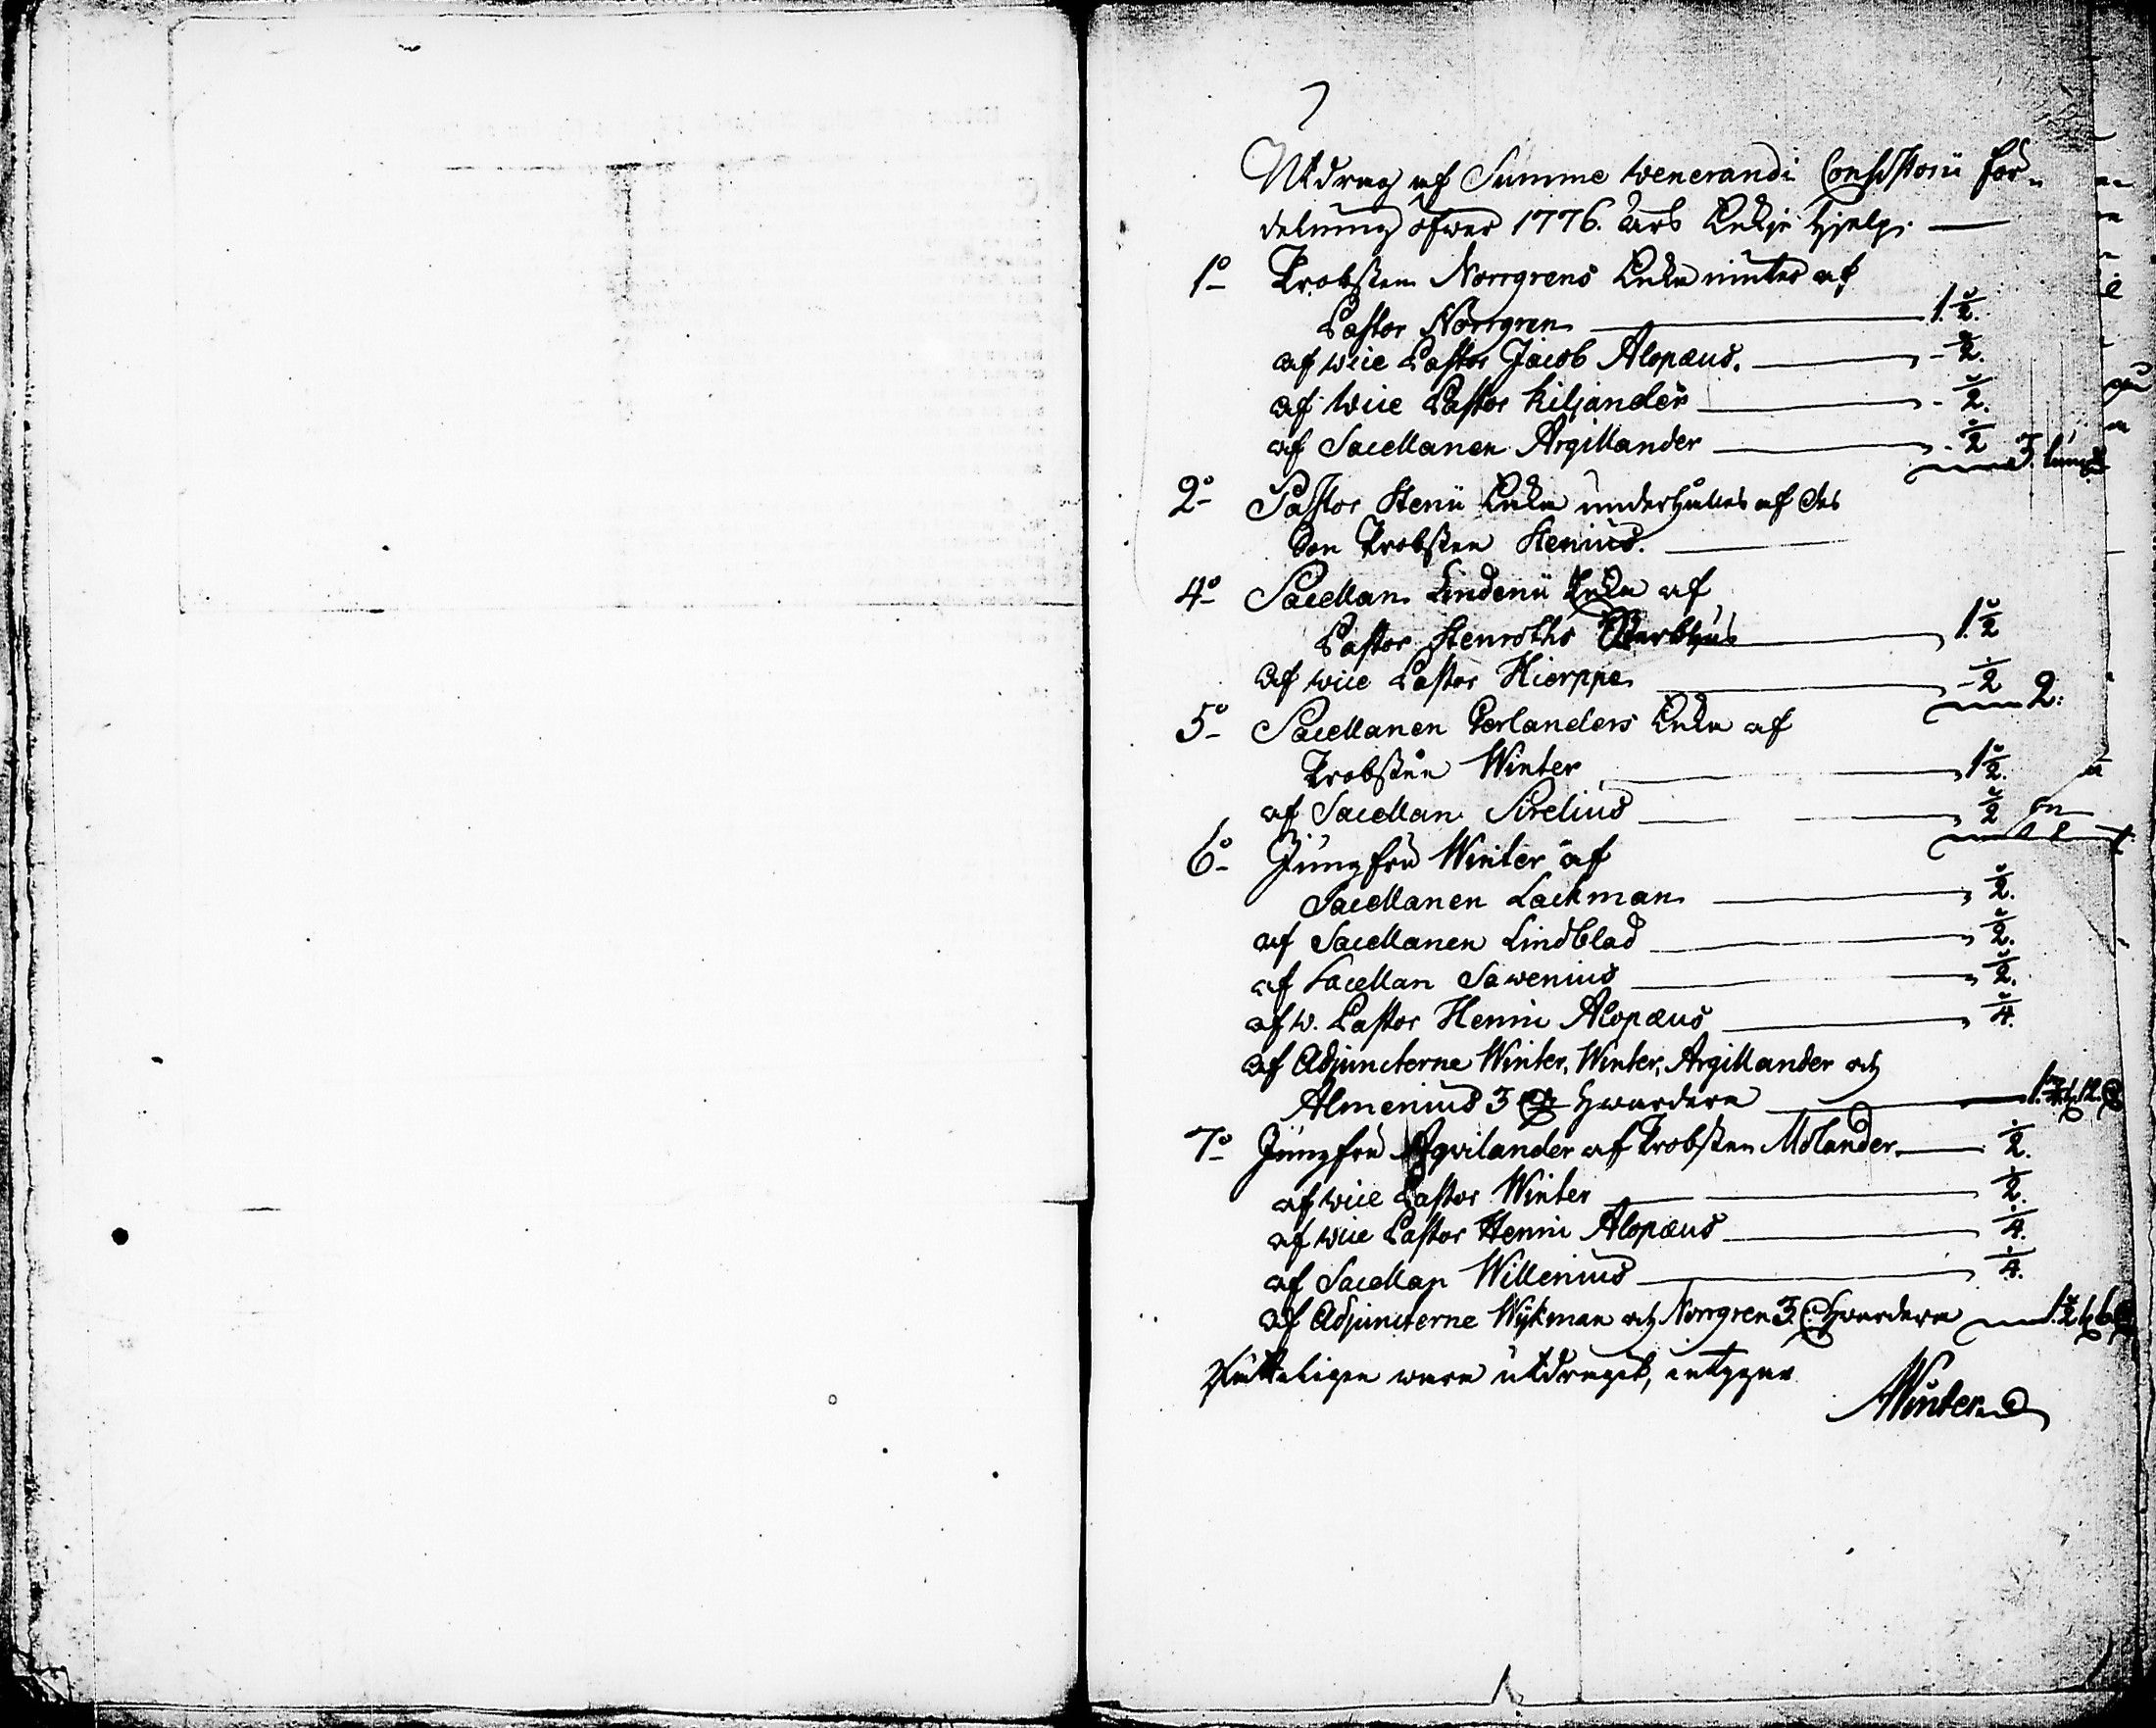 Utdrag af Summe Wenerandi Consistorii för-
delning öfwer 1776. års Enkje Hjelp.
1o Probsten Norrgrens Enka niuter af
Pastor Norrgren 1 1/2.
af wice Pastor Jacob Alopæus. - 1/2.
af Wice Pastor Kiljander - 1/2.
af Sacellanen Argillander - 1/2 3. tunnor
2o Pastor Stenii Enka underhålles af des
Son Probsten Stenius.
4o Sacellan Lindenii Enka af
Pastor Stenroths Sterbhus 1 1/2
af wice Pastor Hierppe - 1/2 2:
5o Sacellanen Porlanders Enka af
Probsten Winter 1 1/2.
af Sacellan Sirelius 1/2
6o Jungfru Winter af
Sacellanen Lackman 1/2.
af Sacellanen Lindblad 1/2.
af Sacellan Sawenius 1/2.
af w. Pastor Henric Alopæus 1/4.
af Adjuncterne Winter, Winter, Argillander och
Almenius 3 hwardera
7o Jungfru Aqvilander af Probsten Molander 1/2.
af wice Pastor Winter 1/2.
af wice Pastor Henric Alopæus 1/4.
af Sacellan Willenius 1/4.
af Adjuncterne Wijkman och Norrgren 3. hwardera
Rätteligen wara utdragit, intygar
Winter